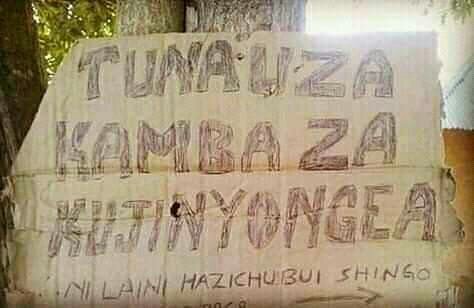 TUNAUZA
KAMBA ZA
KUJINYONGEA
NI LAINI HAZICHUBUI SHINGO